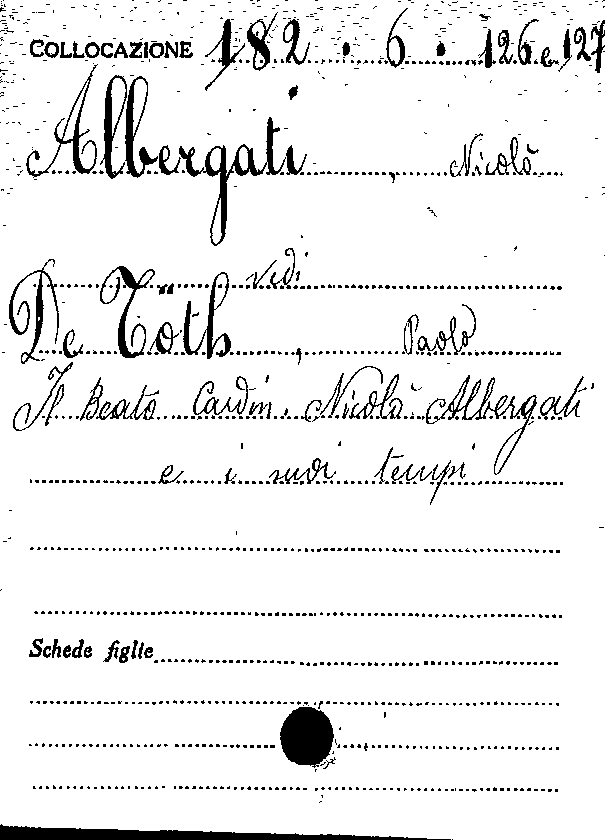 COLLOCAZIONE 182 . 6 . 126 e 127
Albergati, Nicolò
vedi
De Töth, Paolo
Il Beato Cardin. Nicolò Albergati
e i suoi tempi
Schede figlie